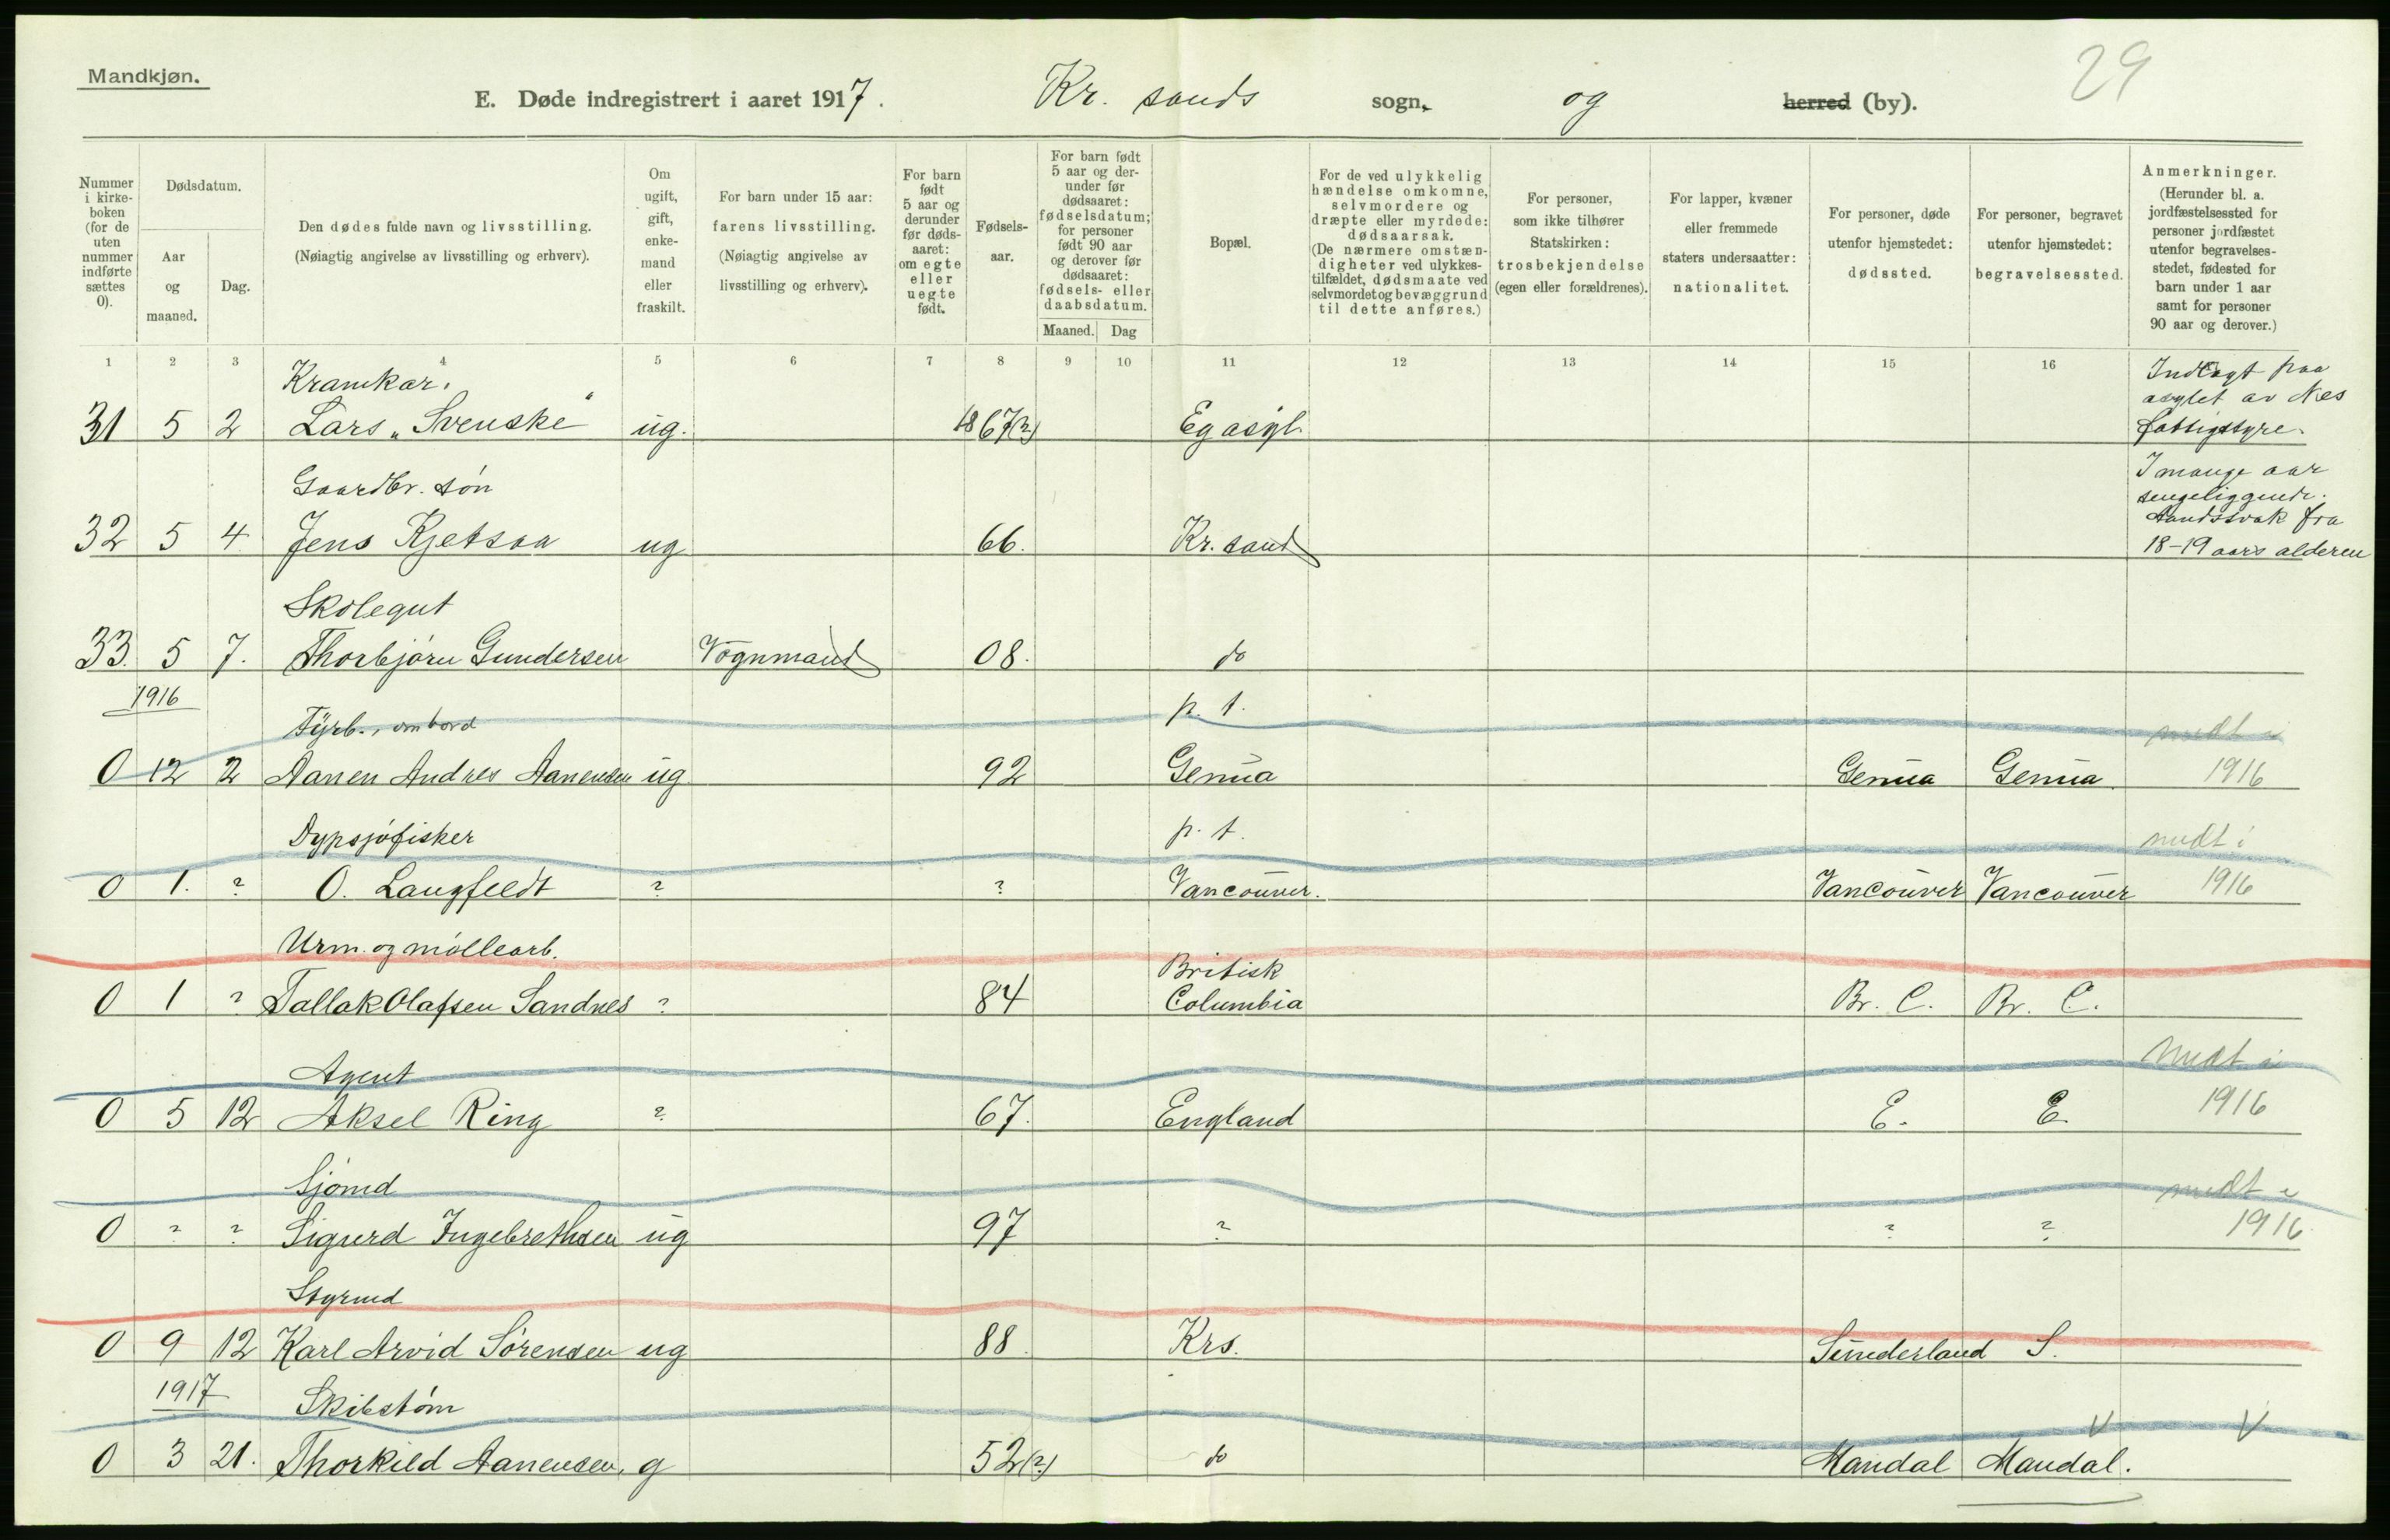 Mandkjøn.
29
E. Døde indregistrert i aaret 1917. Kr. sands sogn, og herred (by).
Nummer i kirke-boken (for de uten nummer indførte sættes 0).
Dødsdatum.
Aar og maaned.
Dag.
Den dødes fulde navn og livsstilling.
(Nøiagtig angivelse av livsstilling og erhverv).
Om ugift, gift, enke-mand eller fraskilt.
For barn under 15 aar: farens livsstilling.
(Nøiagtig angivelse av livsstilling og erhverv).
For barn født 5 aar og derunder før døds-aaret: om egte eller uegte født.
Fødsels-aar.
For barn født 5 aar og der-under før dødsaaret: fødselsdatum; for personer født 90 aar og derover før dødsaaret: fødsels- eller daabsdatum.
Maaned. Dag
Bopæl.
For de ved ulykkelig hændelse omkomne, selvmordere og dræpte eller myrdede: dødsaarsak.
(De nærmere omstæn-digheter ved ulykkes-tilfældet, dødsmaate ved selvmordet og bevæggrund til dette anføres.)
For personer, som ikke tilhører Statskirken: trosbekjendelse (egen eller forældrenes).
For lapper, kvæner eller fremmede staters undersaatter: nationalitet.
For personer, døde utenfor hjemstedet: dødssted.
For personer, begravet utenfor hjemstedet: begravelsessted.
Anmerkninger.
(Herunder bl. a. jordfæstelsessted for personer jordfæstet utenfor begravelses-stedet, fødested for barn under 1 aar samt for personer 90 aar og derover.)
1 2 3 4 5 6 7 8 9 10 11 12 13 14 15 16
Kramkar. Indlagt paa
asylet av Nes
31 5 2 Lars „Svenske" ug. 1867(?) Eg asyl. fattigstyre.
Gaardbr. søn I mange aar
sengeliggende.
Aandssvak fra
32 5 4 Jens Kjetsaa ug 66. Kr. sand 18-19 aars alderen
Skolegut
33. 5 7. Thorbjørn Gundersen Vognmand 08. do
1916
Fyrb., ombord p. t. medt i
0 12 2 Aanen Andres Aanensen ug 92 Genua Genua Genua. 1916
Dypsjøfisker p. t. medt i
0 1. ? O. Langfeldt ? ? Vancouver. Vancouver Vancouver 1916
Urm. og møllearb. Britisk
0 1 ? Tallak Olafsen Sandnes ? 84 Columbia Br. C. Br. C.
Agent Medt i
0 5 12 Aksel Ring ? 67. England E. E. 1916
Sjømd medt i
0 ? ? Sigurd Ingebrethsen ug 97 ? ? ? 1916
Styrmd
0 9 12 Karl Arvid Sørensen ug 88. Krs. Sunderland S.
1917 Skibstøm V V
0 3 21. Thorkild Aanensen, g 52(?) do Mandal Mandal.